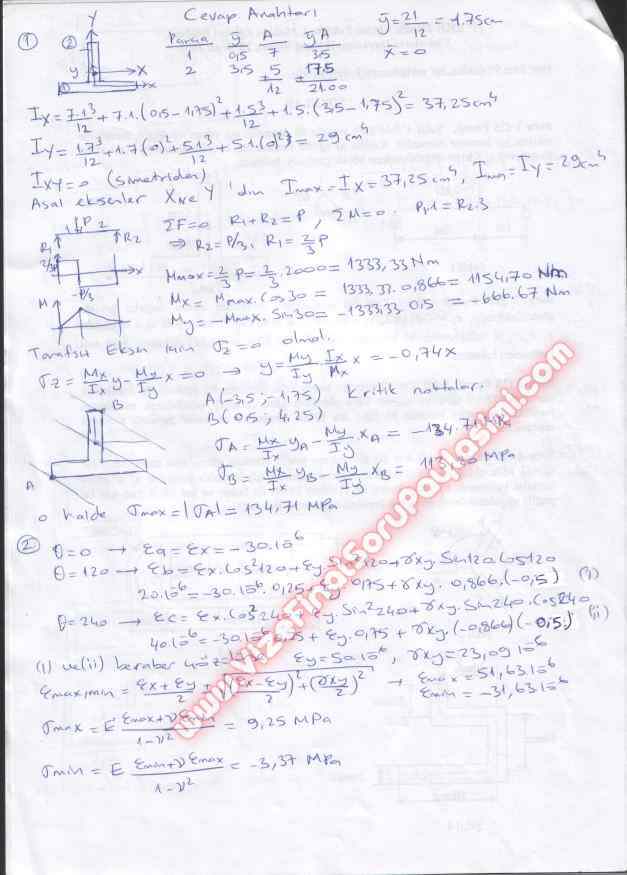 Cevap Anahtarı
① ② Y X y
Parça ȳ A ȳA ȳ=21/12=1.75cm
1 0,5 7 3,5 x=0
2 3,5 +5 +17.5
12 21.00
Ix=7.1³/12+7.1.(0,5-1,75)²+1.5³/12+1.5.(3,5-1,75)²=37,25cm⁴
Iy=1.7³/12+1.7(0)²+5.1³/12+5.1.(0)²=29cm⁴
Ixy=0 (Simetriden)
Asal eksenler X ve Y 'dir Imax=Ix=37,25cm⁴, Imin=Iy=29cm⁴
P R1 R2 ΣF=0 R1+R2=P, ΣM=0. P.1=R2.3
⇒ R2=P/3, R1=2/3P
2/3P -P/3 x
Mmax=2/3P=2/3.2000=1333,33Nm
M Mx=Mmax.Cos30=1333.33.0,866=1154,70 Nm
My=-Mmax.Sin30=-1333.33 0.5=-666.67 Nm
Tarafsız Eksen için σz=0 olmalı.
σz=Mx/Ix y-My/Iy x=0 → y=My/Iy Ix/Mx x=-0,74x
A(-3,5;-1,75) Kritik noktalar.
B(0,5;4.25)
A B
σA=Mx/Ix yA-My/Iy.xA=-134.71 MPa
σB=Mx/Ix yB-My/Iy xB=113,30 MPa
O halde σmax=|σA|=134,71 MPa
② θ=0 → εa=εx=-30.10⁻⁶
θ=120 → εb=εx.Cos²120+εy.Sin²120+γxy.Sin120.Cos120
20.10⁻⁶=-30.10⁻⁶.0,25+εy.0,75+γxy.0,866.(-0,5) (i)
θ=240 → εc=εx.Cos²240+εy.Sin²240+γxy.Sin240.Cos240
40.10⁻⁶=-30.10⁻⁶.0,25+εy.0,75+γxy.(-0,866)(-0,5) (ii)
(i) ve(ii) beraber εy=50.10⁻⁶, γxy=23,09.10⁻⁶
εmax,min=εx+εy/2±√(εx-εy/2)²+(γxy/2)² → εmax=51,63.10⁻⁶
εmin=-31,63.10⁻⁶
σmax=E εmax+νεmin/1-ν²=9,25 MPa
σmin=E εmin+νεmax/1-ν²=-3,37 MPa
www.VizeFinalSoruPaylasimi.com